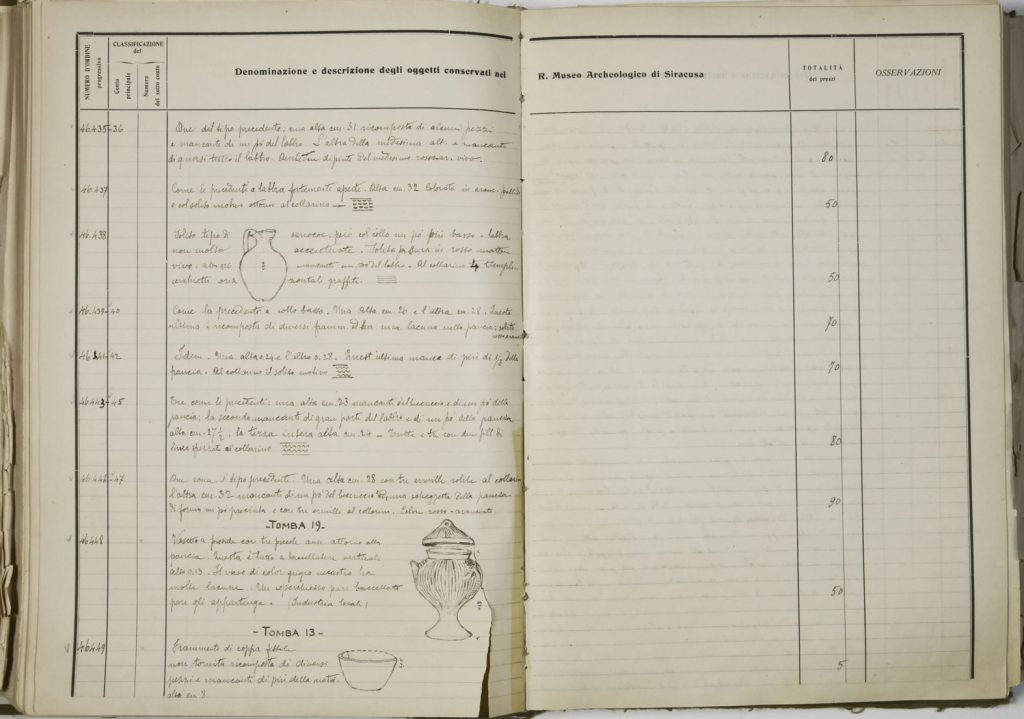 NUMERO D'ORDINE progressivo
CLASSIFICAZIONE del
Conto principale
Numero del sotto conto
Denominazione e descrizione degli oggetti conservati nel
R. Museo Archeologico di Siracusa
TOTALITÀ dei prezzi
OSSERVAZIONI
46.435-36
Due del tipo precedente; una alta cm. 31 ricomposta di alcuni pezzi
e mancante di un pò del labbro. L'altra della medesima alt. e mancante
di quasi tutto il labbro. di del medesimo vivo.
80
46.437
Come le precedenti a labbra fortemente aperte. Alta cm. 32 Colorata in
e col solito motivo attorno al collarino
50
46.438
Solito tipo di però col collo un pò più basso - labbra
non molto accentuate. Solita in rosso mattone
vivo. mancante un pò del labbro. Al collarino 4
orizzontali graffiti.
50
46.439-40
Come la precedente a collo basso. Una alta cm. 26 e l'altra cm. 28. Questa
ultima è ricomposta di diversi framm. ed ha una lacuna nella pancia;
70
46.441-42
Idem. Una alta 0.24 e l'altra 0.28. Quest'ultima manca di più di 1/3 della
pancia. Al collarino il solito motivo
70
46.443-45
Tre come le precedenti: una alta cm. 23 mancante del beccuccio e di un pò della
pancia; la seconda mancante di gran parte del labbro e di un pò della pancia
alta cm. 27 1/2, la terza intera alta cm. 24 - Tutte e tre con
linee spezzate al collarino
80
46.446-47
Due come il tipo precedente. Una alta cm. 28 con tre solite al collarino
l'altra cm. 32 mancante di un pò del beccuccio una della pancia
di forma un pò e con tre al collarino. Colore rosso-aranciato
90
-TOMBA 19-
46448
Vasetto a pisside con tre piccole anse attorno alla
pancia. Questa è tutta a baccellature verticali
alto 0.13. Il vaso di color grigio ha
molte lacune. Un coperchietto pure baccellato
pare gli appartenga. (Industria locale)
50
- TOMBA 13 -
46449
Frammento di coppa fittile
non tornita ricomposta di diversi
pezzi e mancante di più della metà.
alta cm 8.
5